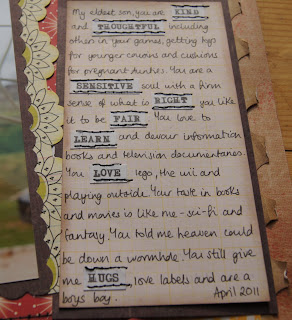 My eldest son, you are KIND
and THOUGHTFUL including
others in your games, getting toys
for younger cousins and cushions
for pregnant aunties. You are a
SENSITIVE soul with a firm
sense of what is RIGHT you like
it to be FAIR You love to
LEARN and devour information
books and television documentaries.
You LOVE lego, the wii and
playing outside. Your taste in books
and movies is like me - sci-fi and
fantasy. You told me heaven could
be down a wormhole. You still give
me HUGS, love labels and are a
boys boy.
April 2011